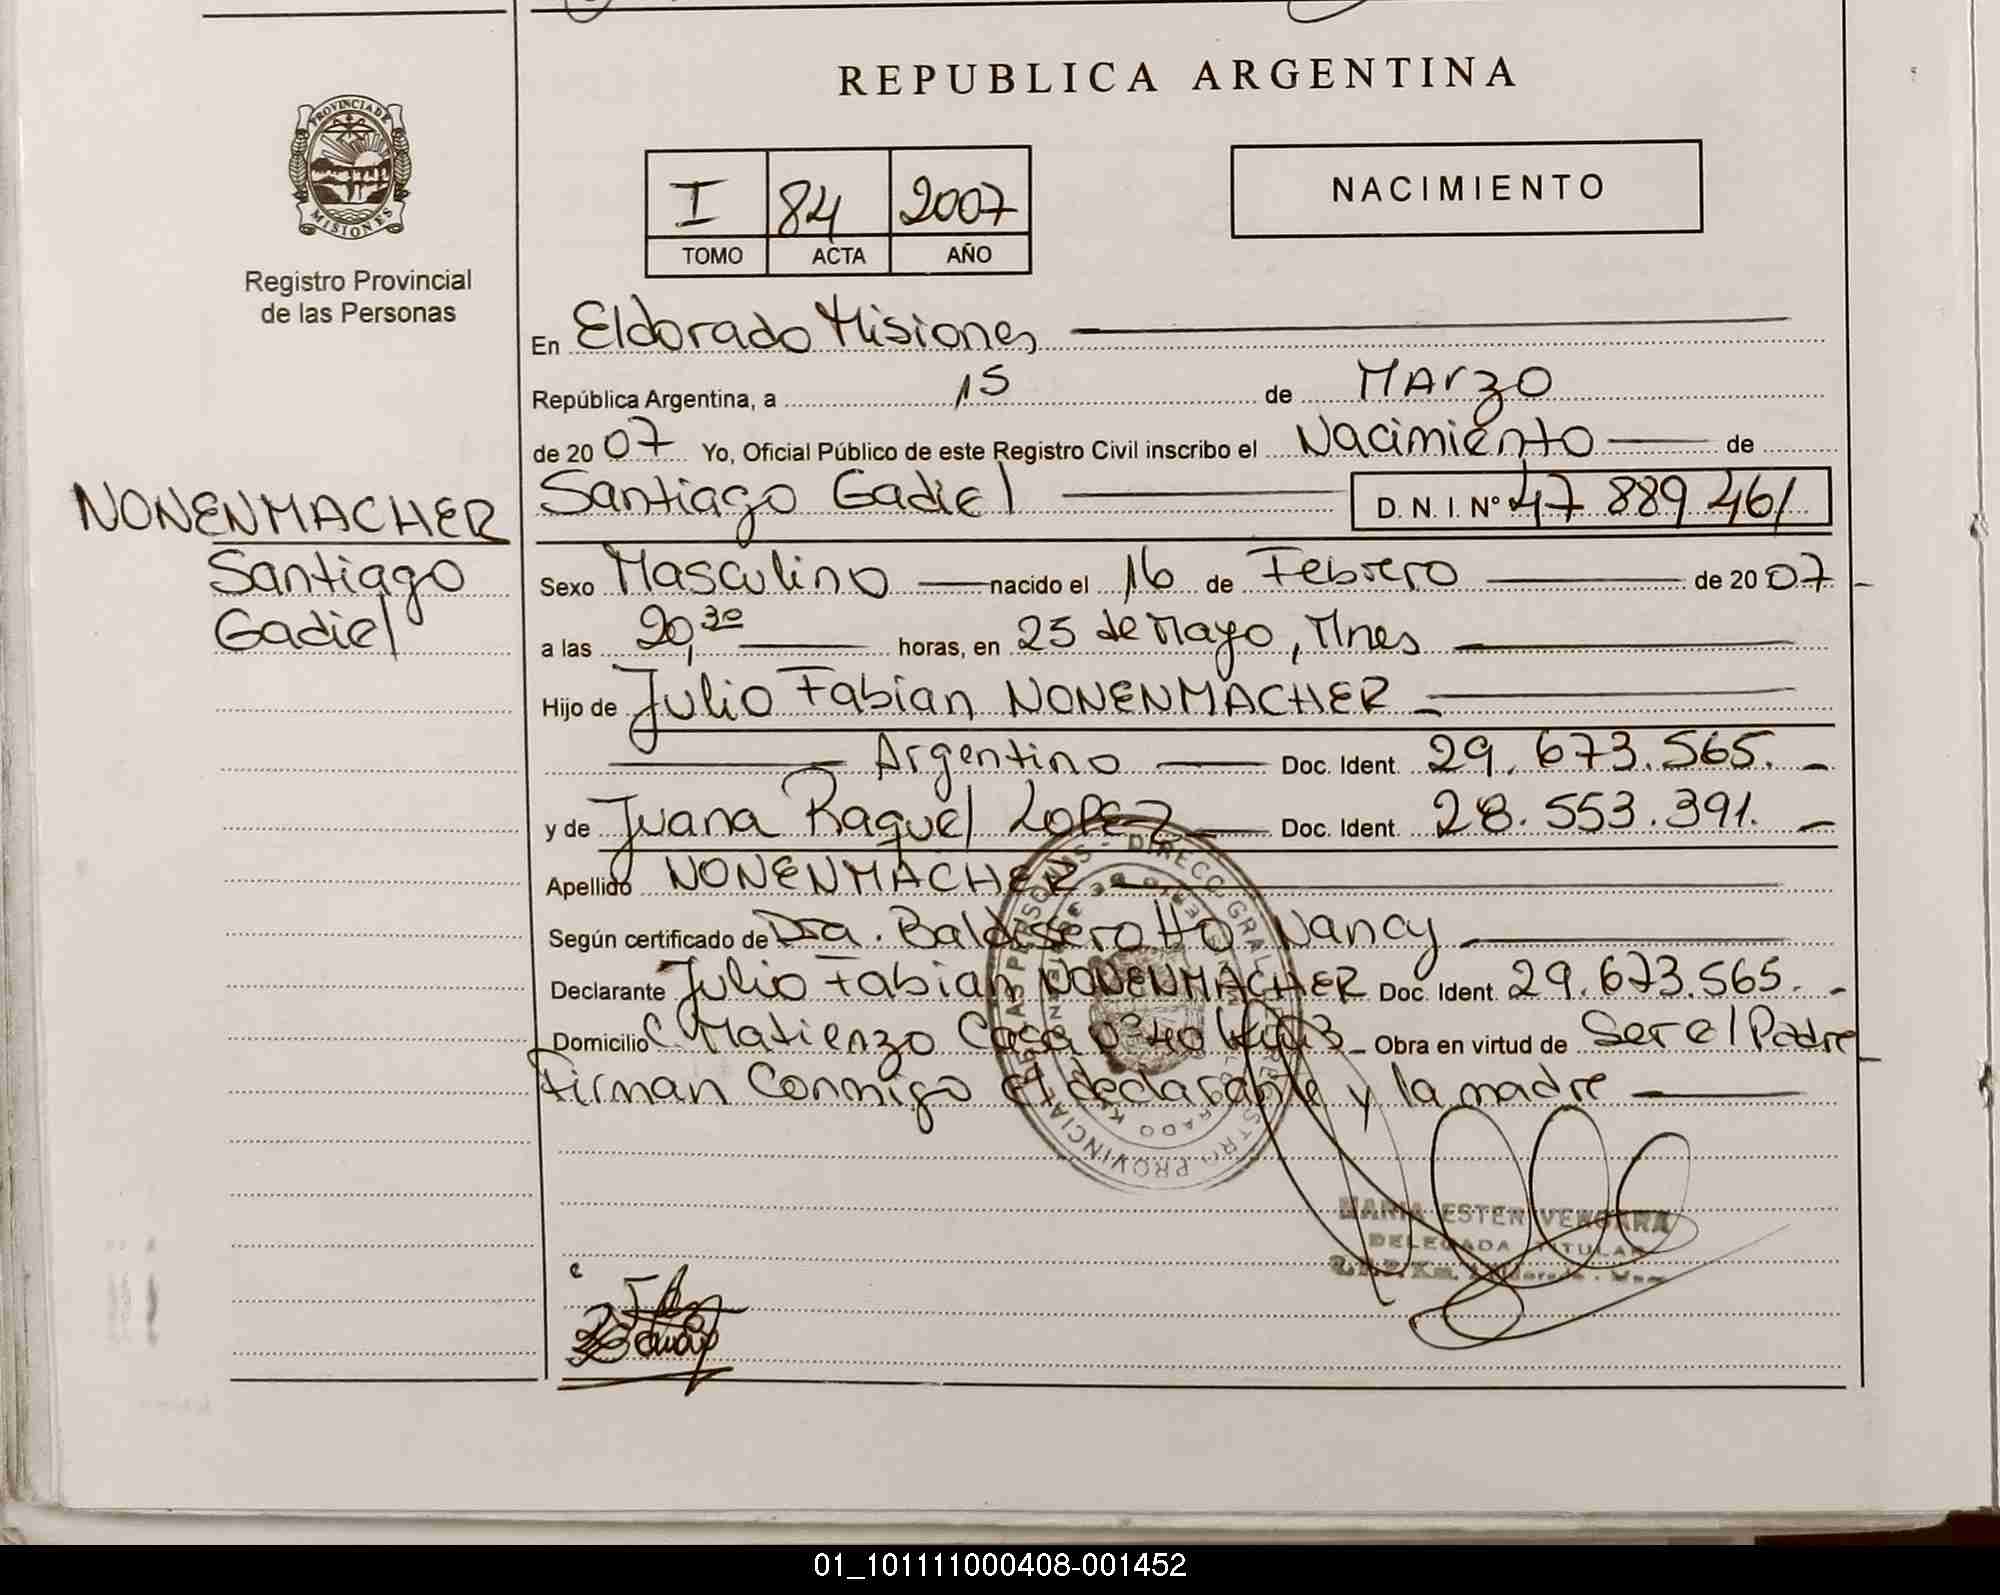 REPUBLICA ARGENTINA
PROVINCIA DE MISIONES
Registro Provincial
de las Personas
I 84 2007
TOMO ACTA AÑO
NACIMIENTO
En Eldorado Misiones
República Argentina, a 15 de Marzo
de 2007 Yo, Oficial Público de este Registro Civil inscribo el Nacimiento de
Santiago Gadiel D. N. I. Nº 47 889 461
NONENMACHER
Santiago
Gadiel
Sexo Masculino nacido el 16 de Febrero de 2007
a las 20,30 horas, en 25 de Mayo, Mnes
Hijo de Julio Fabian NONENMACHER
Argentino Doc. Ident. 29.673.565.
y de Juana Raquel Lopez Doc. Ident. 28.553.391.
Apellido NONENMACHER
Según certificado de Dra. Baldisserotto Nancy
Declarante Julio Fabian NONENMACHER Doc. Ident. 29.673.565.
Domicilio C. Matienzo Casa nº 40 Obra en virtud de Ser el Padre
Firman Conmigo el declarante y la madre
MARIA ESTER VERGARA
DELEGADA TITULAR
01_101111000408-001452